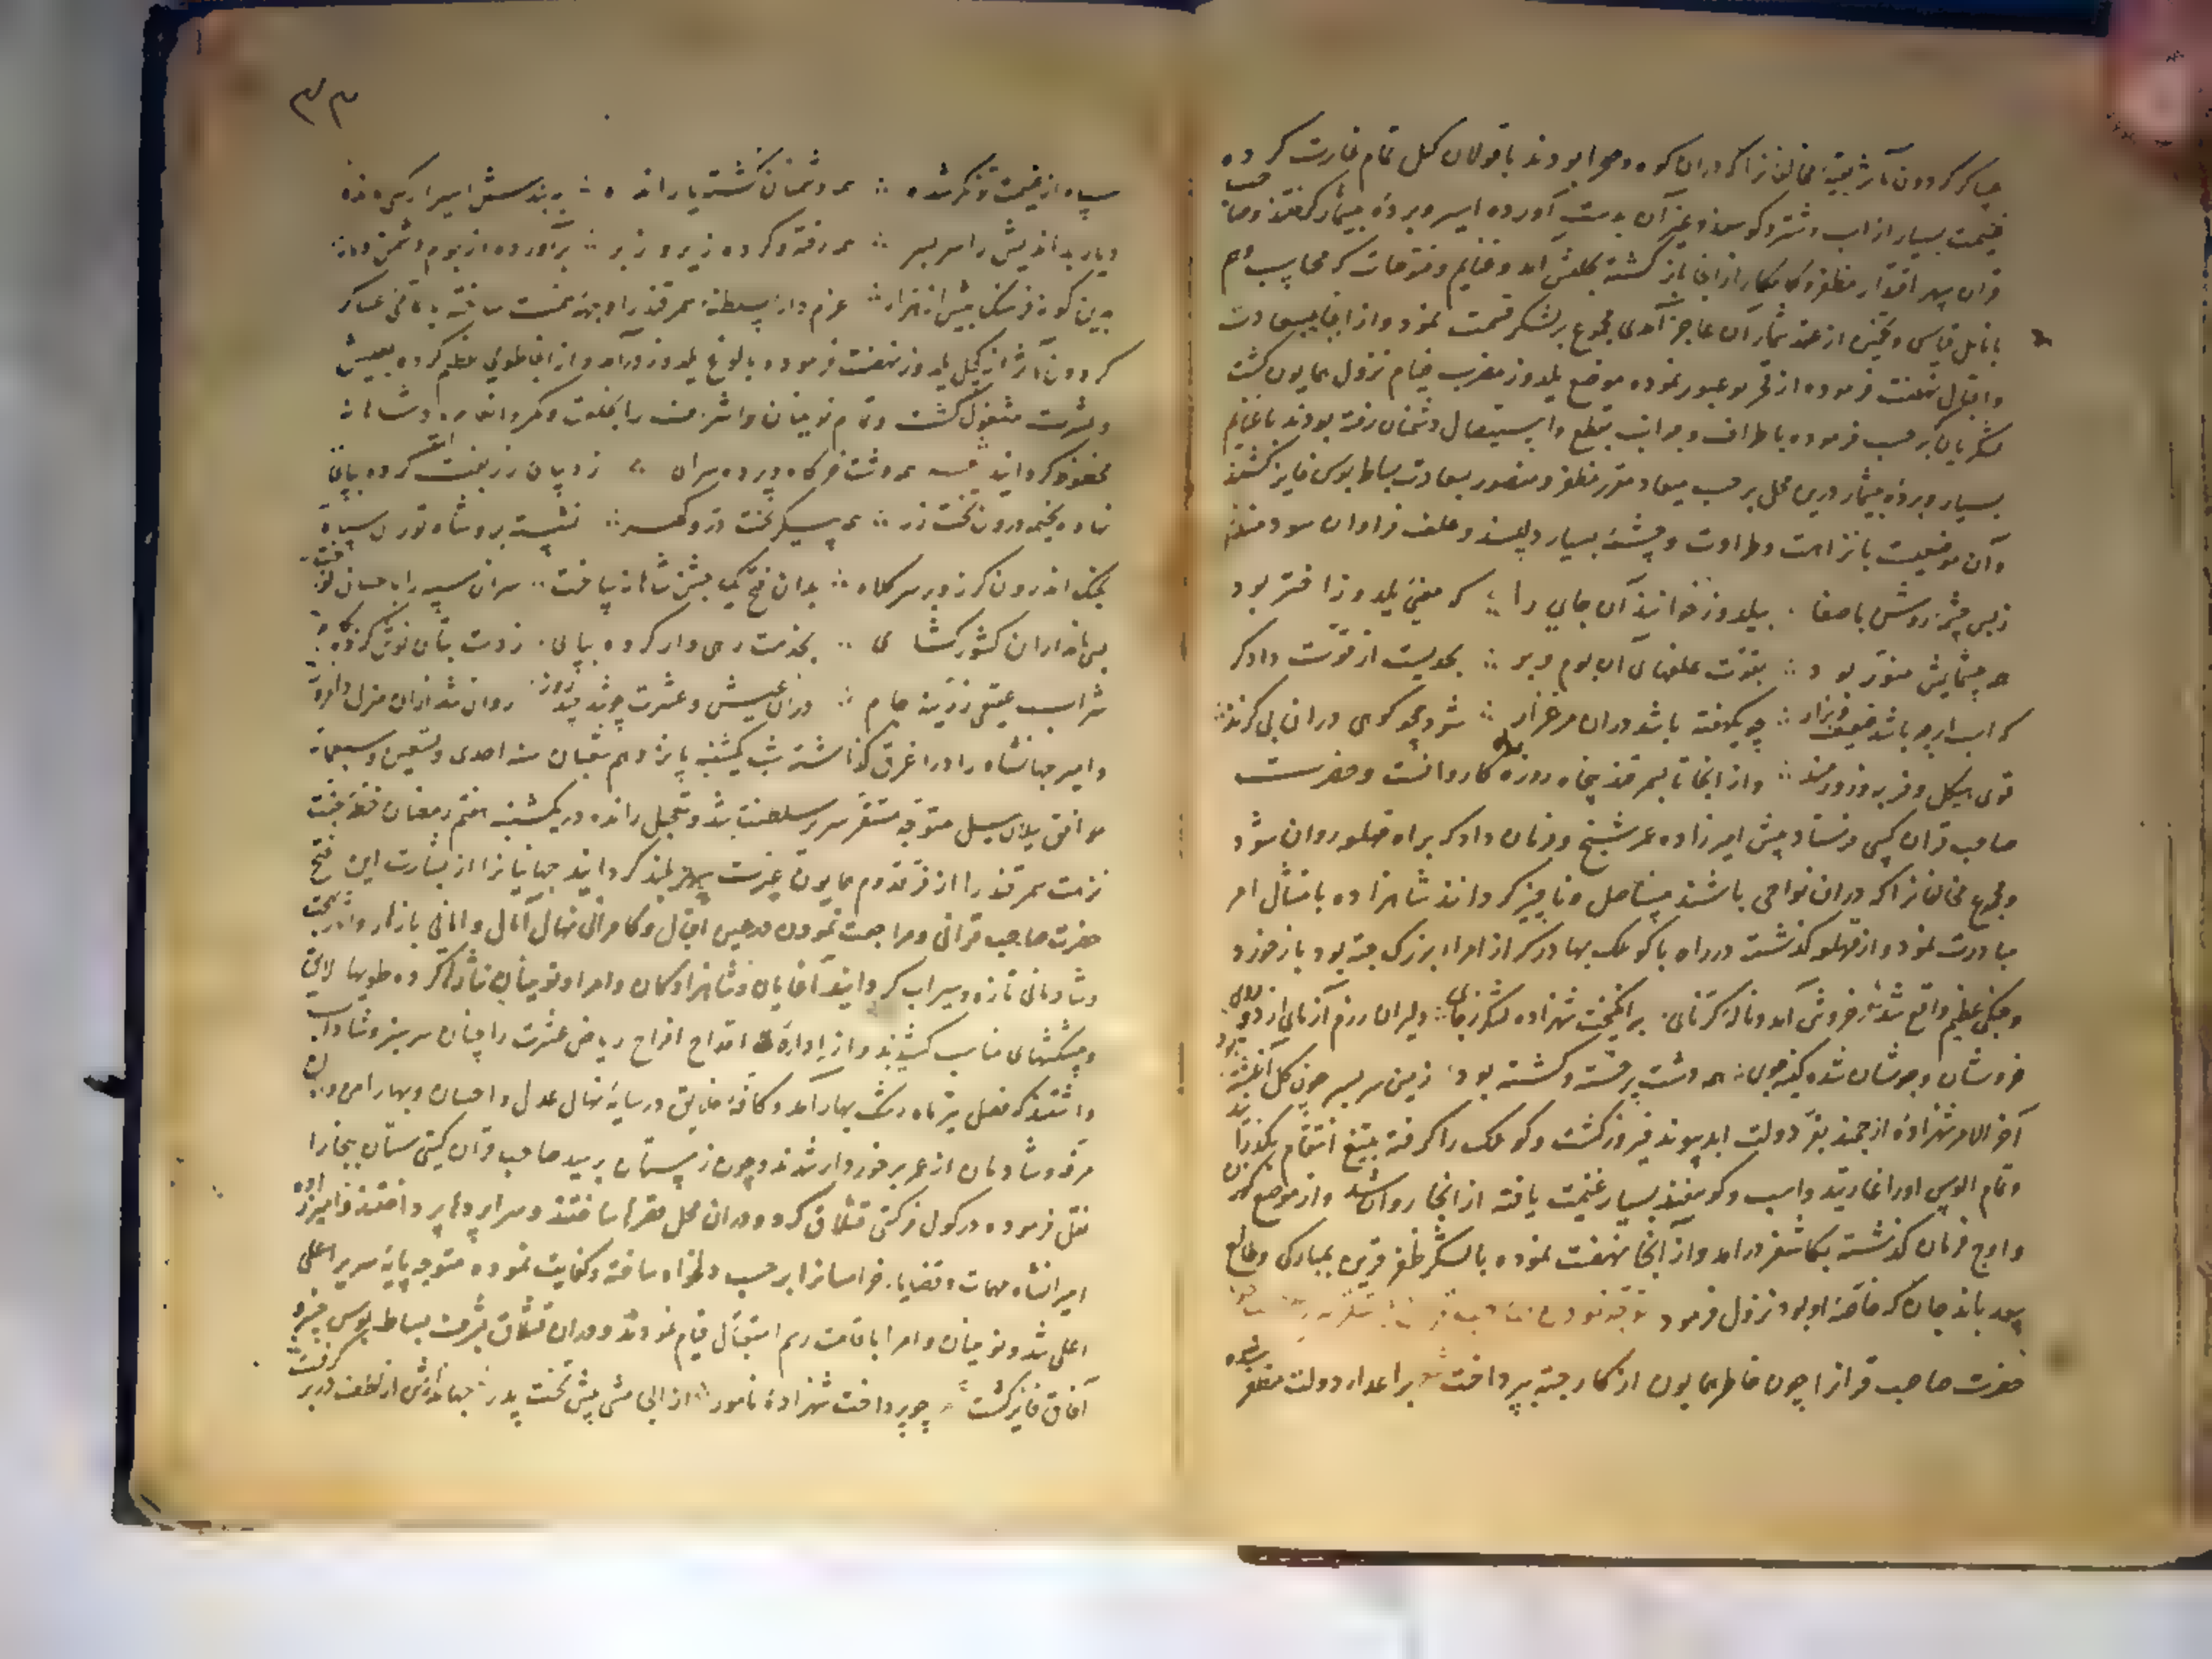 عساکر گردون مآثر بقیهٔ مخالفانرا که دران کوه و صحرا بودند با قولان کل تمام غارت کرده
غنیمت بسیار از اسب و شتر و گوسفند و غیر آن بدست آورده اسیر و بردهٔ بیشمار گرفتند و صاحب
قران سپهر اقتدار مظفر و کامکار از انجا باز گشته آمد و غنایم و فتوحات که محاسب وهم
بانامل قیاس و تخمین از عقد شمار آن عاجز آمدی مجموع بر لشکر قسمت نمود و از انجا بسعادت
و اقبال نهضت فرموده از عبور نموده موضع یلدوز مضرب خیام نزول همایون گشت
لشکریان که بر حسب فرموده باطراف و جوانب بقطع و استیصال دشمنان رفته بودند با غنایم
بسیار و بردهٔ بیشمار درین محل بر حسب میعاد مقرر مظفر و منصور بسعادت بساط بوس فایز گشتند
و آن موضعیست با نزاهت و طراوت و چشمهٔ بسیار دلپسند و علف فراوان سودمند
زبس چشمهٔ روشن باصفا بیلدوز خوانند آن جای را که معنی یلدوز اختر بود
چه چشمهایش منور بود ز قوت علفهای آن بوم و بر بحدیست از قوت دادگر
که اسب ارچه باشد ضعیف و نزار چو یکهفته باشد دران مرغزار شود همچو کوهی دران بی گزند
قوی هیکل و فربه و زورمند و از انجا تا سمرقند پنجاه روزه راه کاروانست و حضرت
صاحب قران کس فرستاد پیش امیرزاده عمر شیخ و فرمان داد که براه قهلغه روان شود
و مجموع مخالفانرا که دران نواحی باشند مستأصل و ناچیز گرداند شاهزاده بامتثال امر
مبادرت نمود و از قهلغه گذشت در راه با کوبلک بهادر که از امراء بزرگ جته بود باز خورد
و جنگی عظیم واقع شد خروش آمد و نالهٔ کرنای برانگیخت شهزاده لشکر زجای دلیران رزم آزمای از دو روی
خروشان و جوشان شده کینه جوی همه دشت پر خسته و کشته بود زمین سر بسر چون گل آغشته بود
آخر الامر شهزادهٔ ارجمند بفر دولت ابد پیوند فیروز گشت و کوبلک را گرفته بتیغ انتقام بگذرانید
و تمام الوس او را غارتید و اسب و گوسفند بسیار غنیمت یافته از انجا روان شد و از موضع
و اوج فرمان گذشته بکاشغر درآمد و از آنجا نهضت نموده با لشکر ظفر قرین بمبارکی و طالع
سعد باندجان که خاصهٔ او بود نزول فرمود
حضرت صاحب قرانرا چون خاطر همایون از کار جته بپرداخت بر اعداء دولت مظفر شده
۳۳
سپاه از غنیمت توانگر شده همه دشمنان کشته یا رانده
دیار بداندیش را سر بسر همه رفته و کرده زیر و زبر برآورده از بوم دشمن دمار
بدین گونه فرسنگ بیش از هزار عزم دار السلطنهٔ سمرقند را وجههٔ همت ساخته با تمامی عساکر
گردون مآثر از کیچیک یلدوز نهضت فرموده بالوغ یلدوز درآمد و از انجا طوی عظیم کرده بعیش
و عشرت مشغول گشت و تمام نوینان و اشراف را بخلعت و کمر و انعام و شاهانه
محظوظ گردانید همه دشت خرگاه و پرده سرای ز دیبای زربفت کرده بپای
نهاده بخیمه درون تخت زر همه پیکر تخت در و گهر نشسته برو شاه توران سپاه
بچنگ اندرون گرز و بر سر کلاه بدان فتح یک جشن شاهانه ساخت سران سپه را باحسان نواخت
جهانداران کشور گشای بخدمت رهی وار کرده بپای ز دست بتان نوش کرده بکام
شراب عقیق زرینه جام دران عیش و عشرت چو شد چند روز روان شد ازان منزل دلفروز
و امیر جهانشاه را در اغرق گذاشته شب یکشنبه پانزدهم شعبان سنه احدی و تسعین و سبعمائه
موافق ییلان ییل متوجه مستقر سریر سلطنت شد و بتعجیل رانده در یکشنبه هفتم رمضان خطهٔ جنت
نزهت سمرقند را از فر قدوم همایون غیرت سپهر بلند گردانید جهانیانرا از بشارت این فتح
حضرت صاحب قرانی و مراجعت نمودن در عین اقبال و کامرانی نهال آمال و امانی بازهار و انوار بهجت
و شادمانی تازه و سیراب گردانید آغایان و شاهزادگان و امرا و نوینان نثارها کرده طویها لایق
و پیشکشهای مناسب کشیدند و از ادارهٔ اقداح افراح ریاض عشرت را چنان سرسبز و شاداب
داشتند که فصل تیر ماه رشک بهار آمد و کافهٔ خلایق در سایهٔ نهال عدل و احسان و بهار امن و امان
مرفه و شادمان از عمر برخوردار شدند و چون زمستان رسید صاحب قران گیتی ستان ببخارا
نقل فرموده در کول فرکتی قشلاق کرد و دران محل مقرها ساختند و سراپردها پرداختند و امیرزاده
امیرانشاه مهمات و قضایاء خراسانرا بر حسب دلخواه ساخته و کفایت نموده متوجه پایهٔ سریر اعلی
اعلی شد و نوینان و امرا باقامت رسم استقبال قیام نمودند و دران قشلاق بشرف بساط بوس خسرو
آفاق فایز گشت چو پرداخت شهزادهٔ نامور از پیش تخت پدر جهاندارش از لطف در بر گرفت